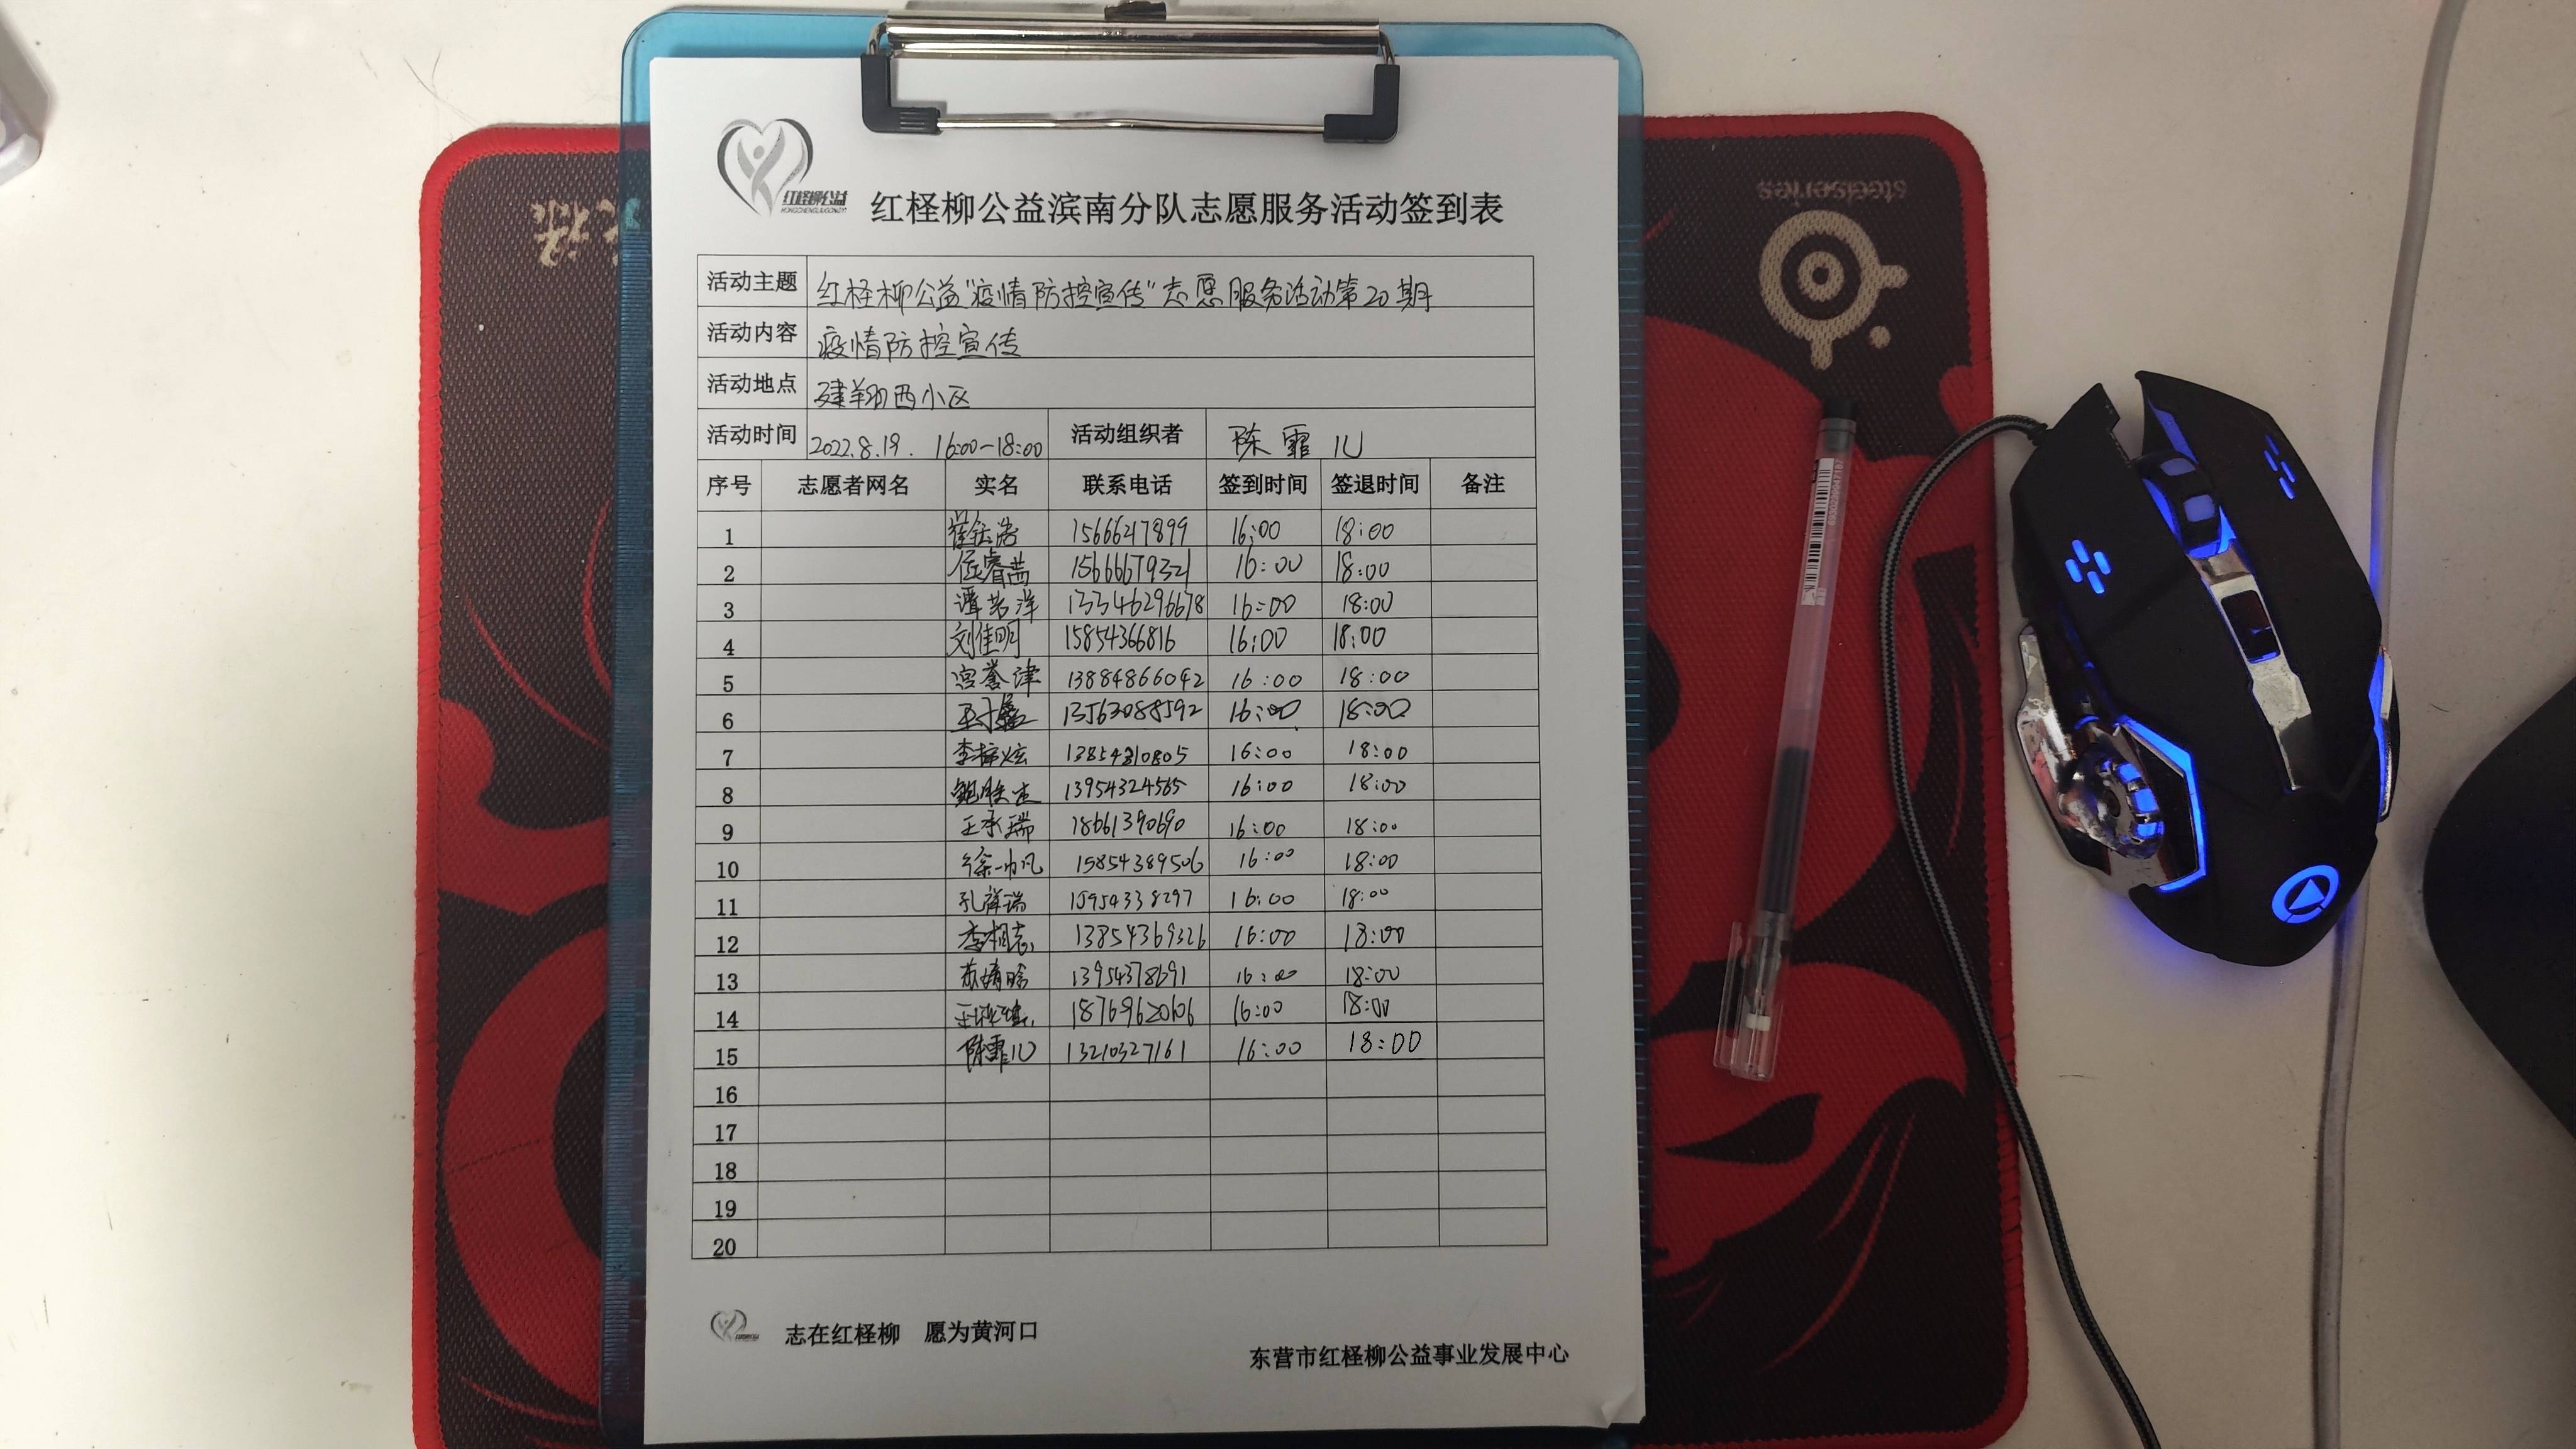 红柽柳公益
HONGCHENGLIUGONGYI
红柽柳公益滨南分队志愿服务活动签到表
活动主题 红柽柳公益"疫情防控宣传"志愿服务活动第20期
活动内容 疫情防控宣传
活动地点 建翔西小区
活动时间 2022.8.19. 16:00-18:00 活动组织者 陈霏儿
序号 志愿者网名 实名 联系电话 签到时间 签退时间 备注
1 15666217899 16:00 18:00
2 15666679321 16:00 18:00
3 13346296678 16:00 18:00
4 刘佳明 15854366816 16:00 18:00
5 宫誉津 13884866042 16:00 18:00
6 13563088592 16:00 18:00
7 李梓炫 13854210805 16:00 18:00
8 13954324565 16:00 18:00
9 王承瑞 18661390690 16:00 18:00
10 徐一帆 15854389506 16:00 18:00
11 孔祥瑞 15954338297 16:00 18:00
12 李相志 13854369326 16:00 18:00
13 13954378691 16:00 18:00
14 18769620606 16:00 18:00
15 陈霏儿 13210327161 16:00 18:00
16
17
18
19
20
志在红柽柳 愿为黄河口
东营市红柽柳公益事业发展中心
steelseries